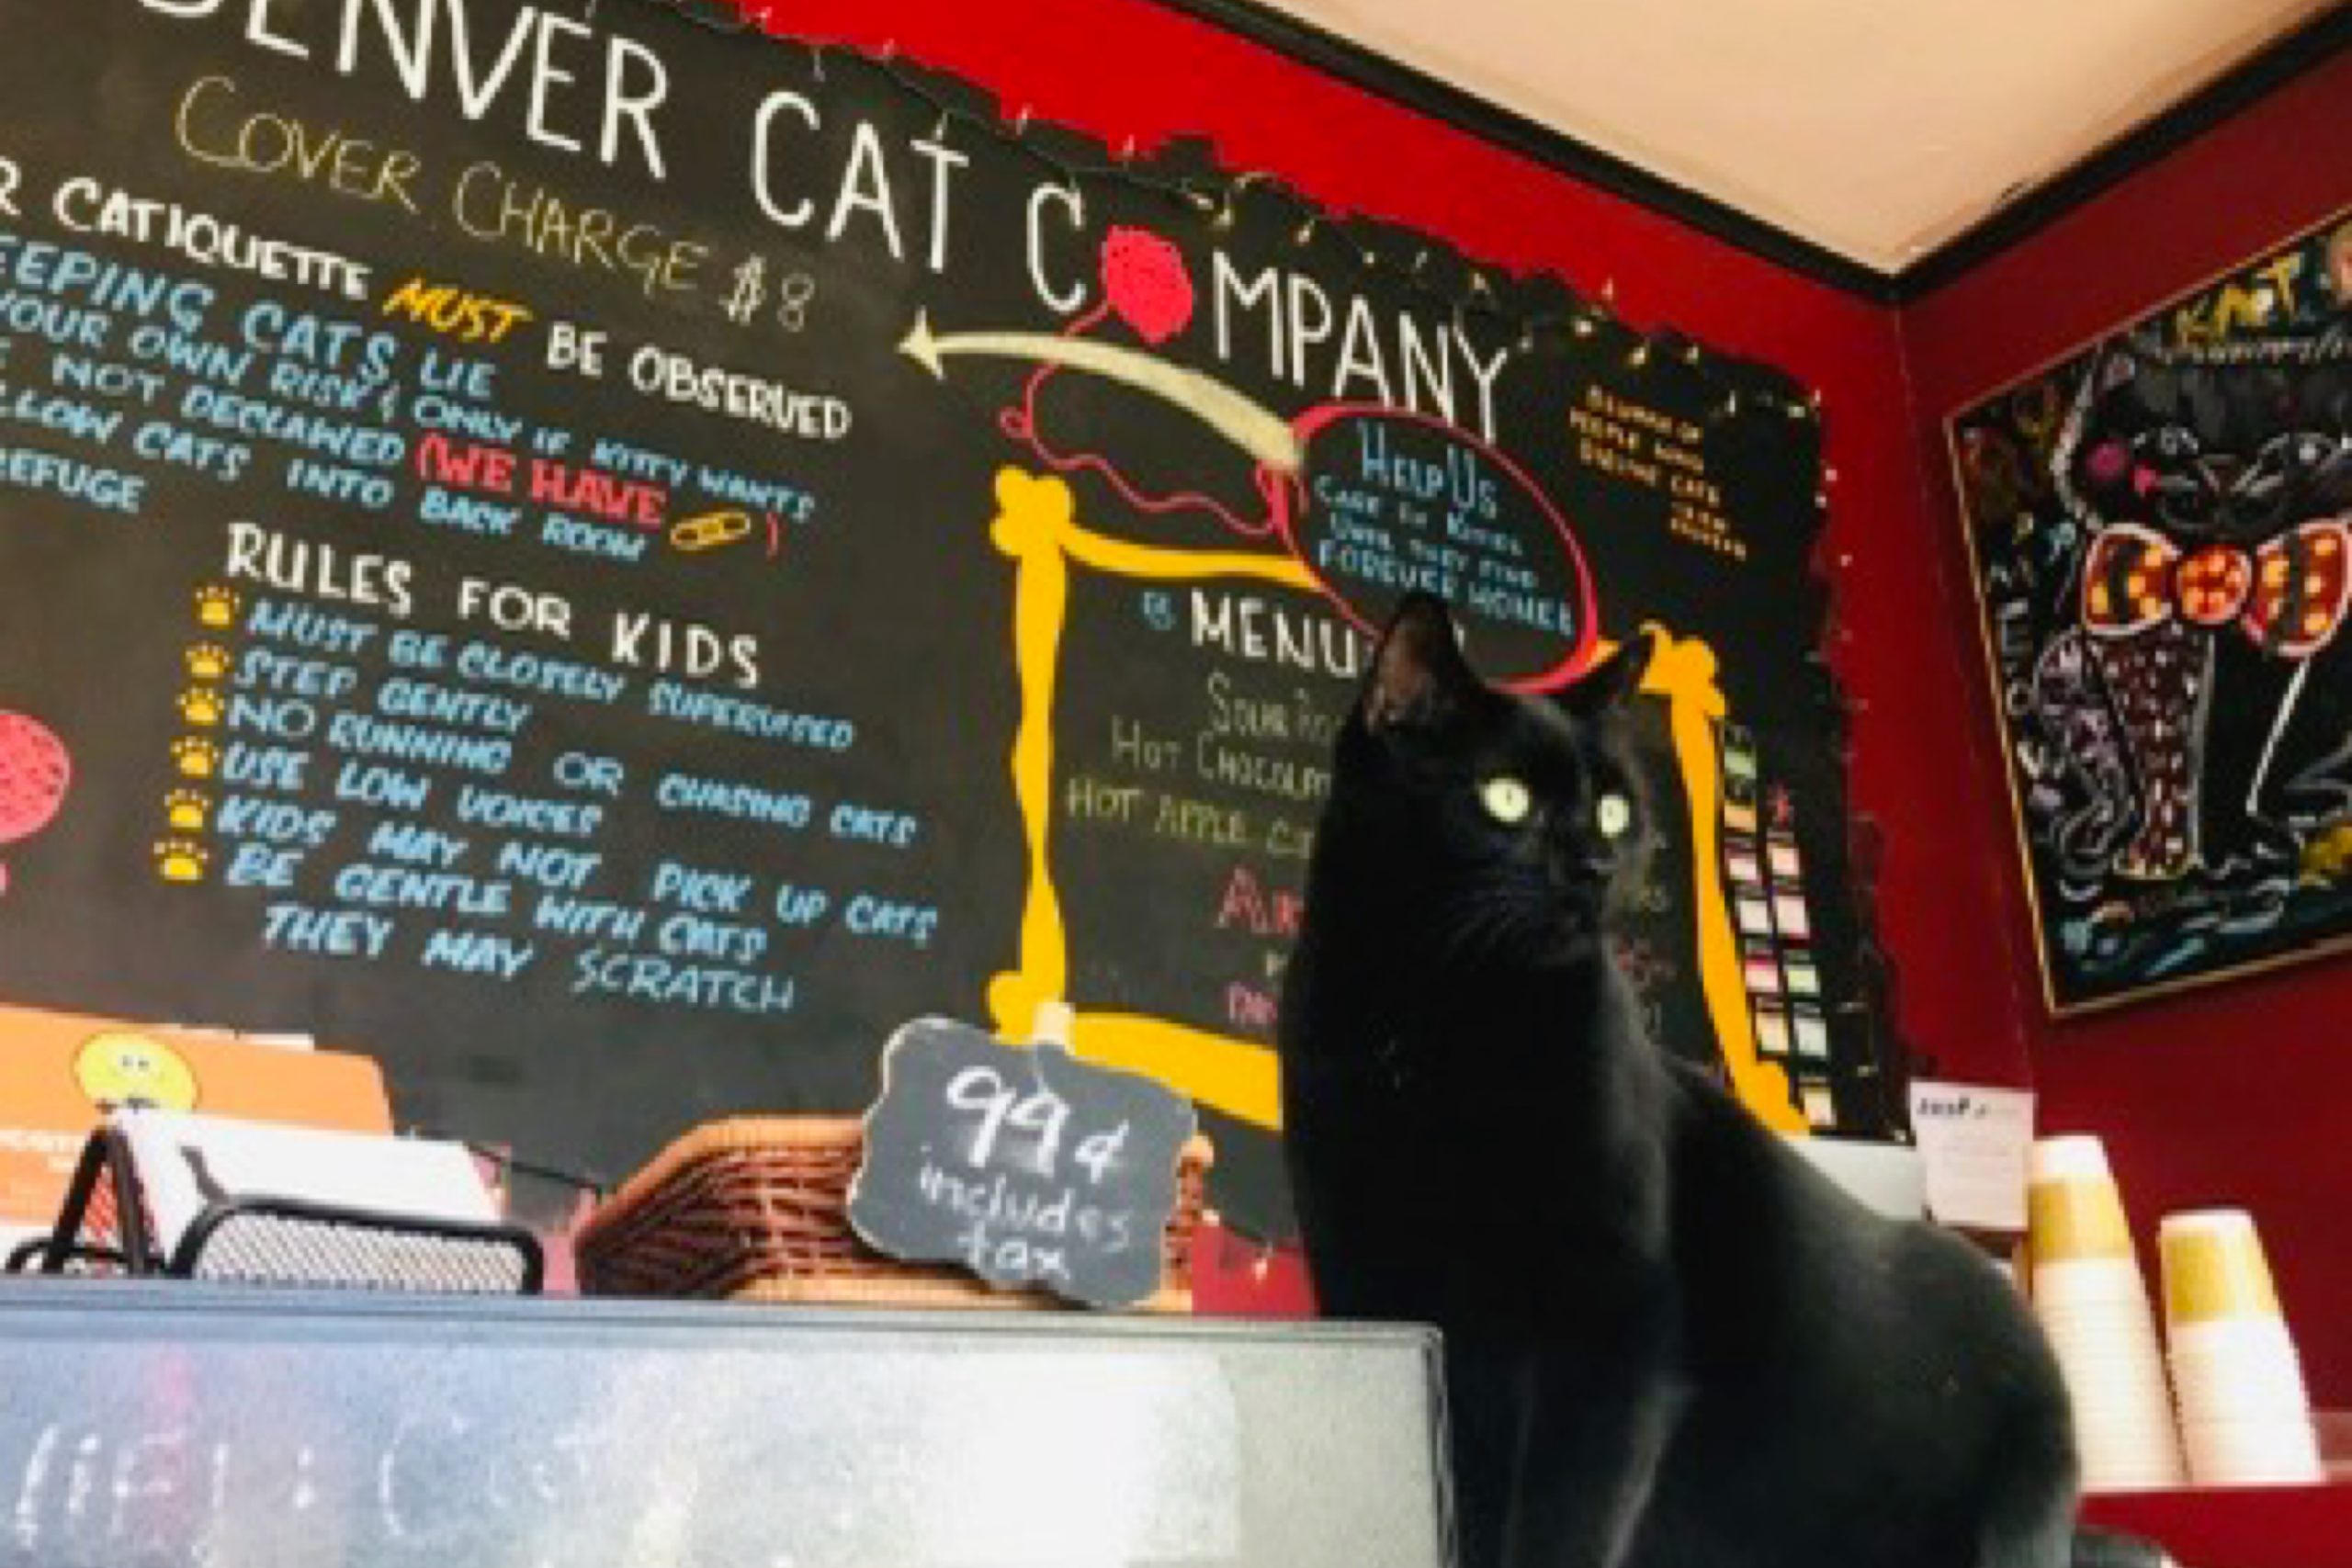 DENVER CAT COMPANY
COVER CHARGE $8
CATIQUETTE MUST BE OBSERVED
EEPING CATS LIE
YOUR OWN RISK & ONLY IF KITTY WANTS
NOT DECLAWED (WE HAVE )
LLOW CATS INTO BACK ROOM
REFUGE
RULES FOR KIDS
MUST BE CLOSELY SUPERVISED
STEP GENTLY
NO RUNNING OR CHASING CATS
USE LOW VOICES
KIDS MAY NOT PICK UP CATS
BE GENTLE WITH CATS
THEY MAY SCRATCH
HELP US
CARE FOR KITTIES
UNTIL THEY FIND
FOREVER HOMES
MENU
HOT CHOCOLAT
HOT APPLE CI
99¢
includes
tax
MEOW